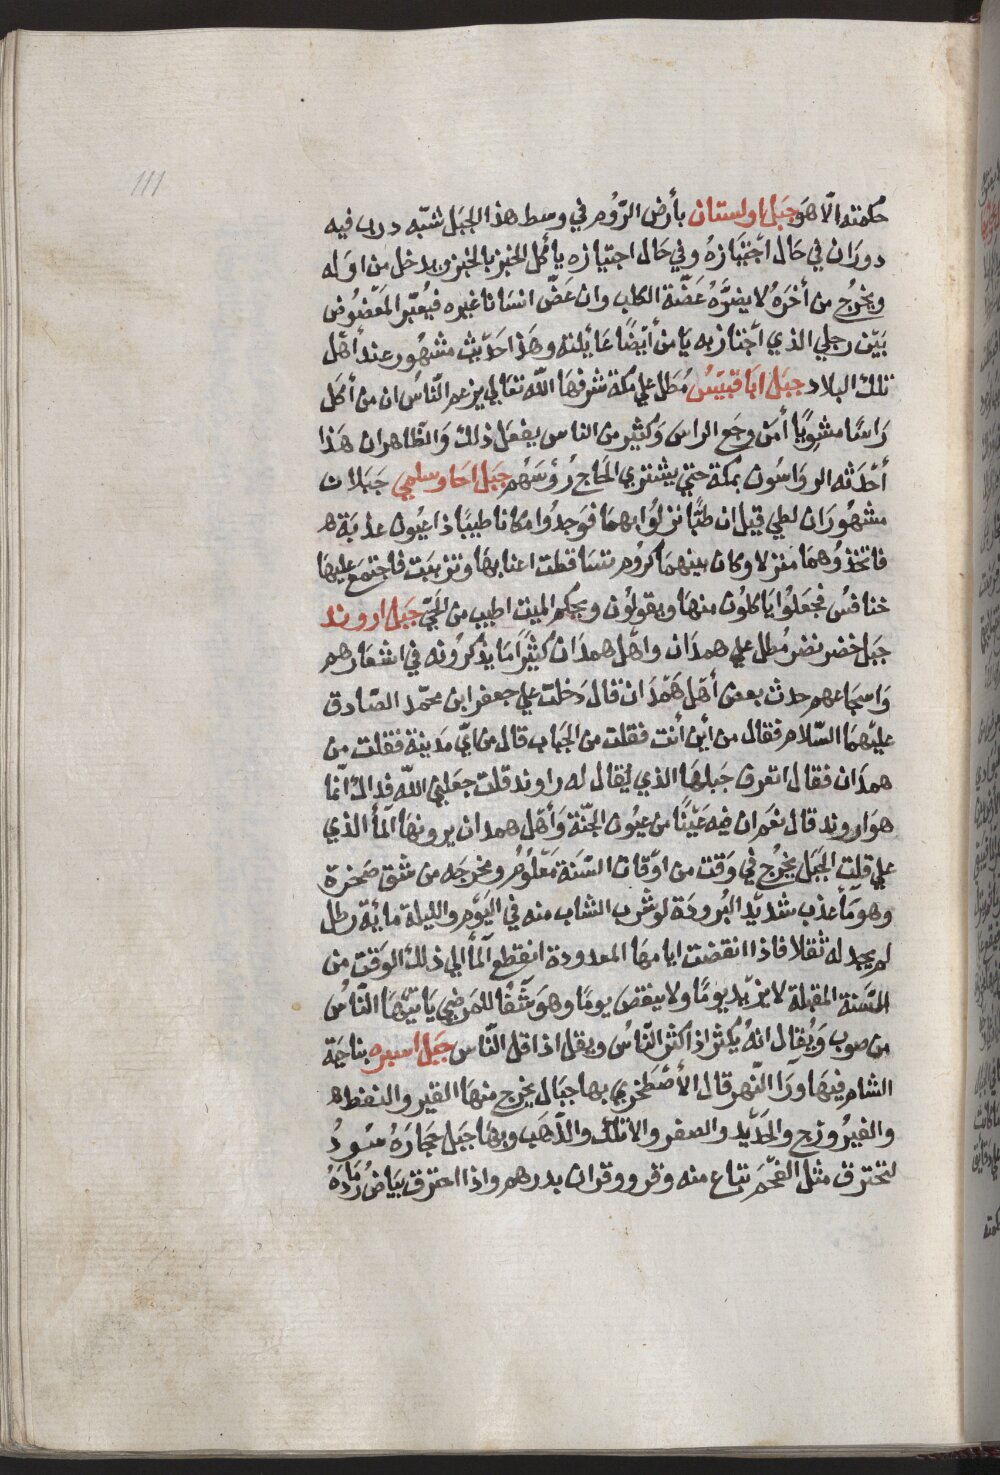 111
حكمته الّا هوَ جبَل اولستان بأرض الرّوُم في وسط هذا الجبَل شبّه درب فيه
دورَان في حَال اجتيَازهُ وفي حَال اجتيازه يأكل الخبز بالجبن ويدخل من اوله
ويخرُج من أخرَهُ لا يضرّهُ عَضّة الكلب وان عَضّ انسَانا غيره فيُعبّر المَعضُوض
بَيّن رجلي الذي اجتاز به يَامن أيضًا غايلته وهَذا حَديث مشهُور عند أهل
تلك البلاد جبَل ابَا قبيَسُ مُطَل علي مكة شرفهَا اللّه تعَالي يزعم النّاسُ ان من أكل
رَاسًا مشويًا أمَن وجَع الراس وَكثير من الناس يفعَل ذلك وَالظّاهر ان هَذا
أحدَثه الرواسُون بمكة حتي يشتري الحَاج رُؤسَهُم جبَل اجَا وسلمي جبَلان
مشهُورَان لطي قيل ان طيًا نزلُوا بهمَا فوَجدُوا مكانا طيبًا ذا عيُون عذبَة ه
فاتخذُوهمَا منزلا وكان بينهمَا كرُوم تسَاقطت اعنابهَا وتزببَت فاجتمَع عليهَا
خنافسُ فجعَلوُا يَاكلُون منهَا ويقولُون ويحكم الميت اطيب من الحَيّ جبَل اروند
جبَل اخضر نضر مُطل علي همدَان واهْل همدَان كثيرًا مَا يذكرُونه في اشعَارهم
وَاسجَاعهم حدث بعض أهَل هَمْدَان قال دَخلت علي جعفر ابن محمّد الصَادق
عليهمَا السّلام فقال من أين أنت فقلت من الجبَاب قال من ايّ مدَينة فقلت من
همدَان فقال اتعرف جبَلهَا الذي يُقال له راوند قلت جعَلني اللّه فداك انّما
هوَ اروند قال نعَم ان فيه عَينًا من عيُون الجنّة وَأهل همدان يرونها المَآ الذي
علي قلت الجبَل يخرُج في وَقت من اوقات السّنَة مَعْلوُم ومخرجَه من شق صَخرة
وهو مَآ عذب شديد البُرودَة لو شرب الشاب منه في اليَوم والليلة مايَة رطل
لم يجد له ثقلا فاذا انقضت ايامهَا المعدودة انقطع المَآ الي ذلك الوَقت من
السّنة المقبلة لا يزيد يومًا ولا ينقص يومًا وهوَ شفًا للمَرضي يَاتيهَا النّاسُ
من صوب وَيُقال انهُ يُكثر اذ اكثر النّاسُ ويقل اذا قل النّاس جبَل اسبره بناحيَة
الشام فيهَا ورَا النّهر قال الأصْطَخري بها جبَال يخرج منهَا القير والنفط ه
والفيرُوزج والحَديد والصفر والانك والذّهَب وبهَا جبَل حجَارَهُ سُودُ
تحترق مثل الفحْم تباع منه وقر ووقران بدرهم واذا احترق بيَاض رَمَادَهُ